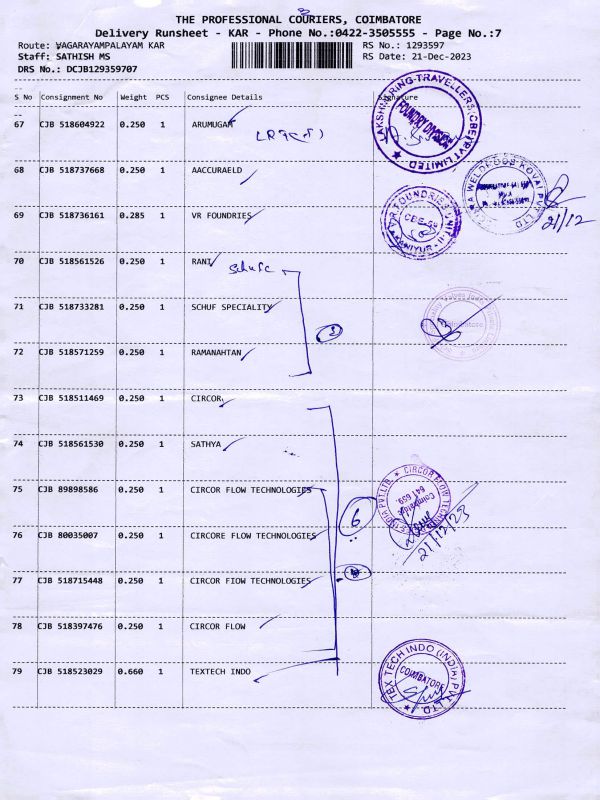 THE PROFESSIONAL COURIERS, COIMBATORE
Delivery Runsheet - KAR - Phone No.:0422-3505555 - Page No.:7
Route: VAGARAYAMPALAYAM KAR
RS No.: 1293597
Staff: SATHISH MS
RS Date: 21-Dec-2023
DRS No.: DCJB129359707
S No Consignment No Weight PCS Consignee Details Signature
67 CJB 518604922 0.250 1 ARUMUGAM
LAKSHMI RING TRAVELLERS (CBE) PVT LIMITED
FOUNDRY DIVISION
68 CJB 518737668 0.250 1 AACCURAELD
21/12
69 CJB 518736161 0.285 1 VR FOUNDRIES
VR FOUNDRIES
CBE-59
KANIYUR
70 CJB 518561526 0.250 1 RANI
Schufc
71 CJB 518733281 0.250 1 SCHUF SPECIALITY
3
Coimbatore
72 CJB 518571259 0.250 1 RAMANAHTAN
73 CJB 518511469 0.250 1 CIRCOR
74 CJB 518561530 0.250 1 SATHYA
75 CJB 89898586 0.250 1 CIRCOR FLOW TECHNOLOGIES
6
CIRCOR FLOW TECHNOLOGIES INDIA PVT LTD
Coimbatore
641 659.
21/12/23
76 CJB 80035007 0.250 1 CIRCORE FLOW TECHNOLOGIES
77 CJB 518715448 0.250 1 CIRCOR FIOW TECHNOLOGIES
78 CJB 518397476 0.250 1 CIRCOR FLOW
79 CJB 518523029 0.660 1 TEXTECH INDO
TEX TECH INDO (INDIA) PVT LTD.
COIMBATORE